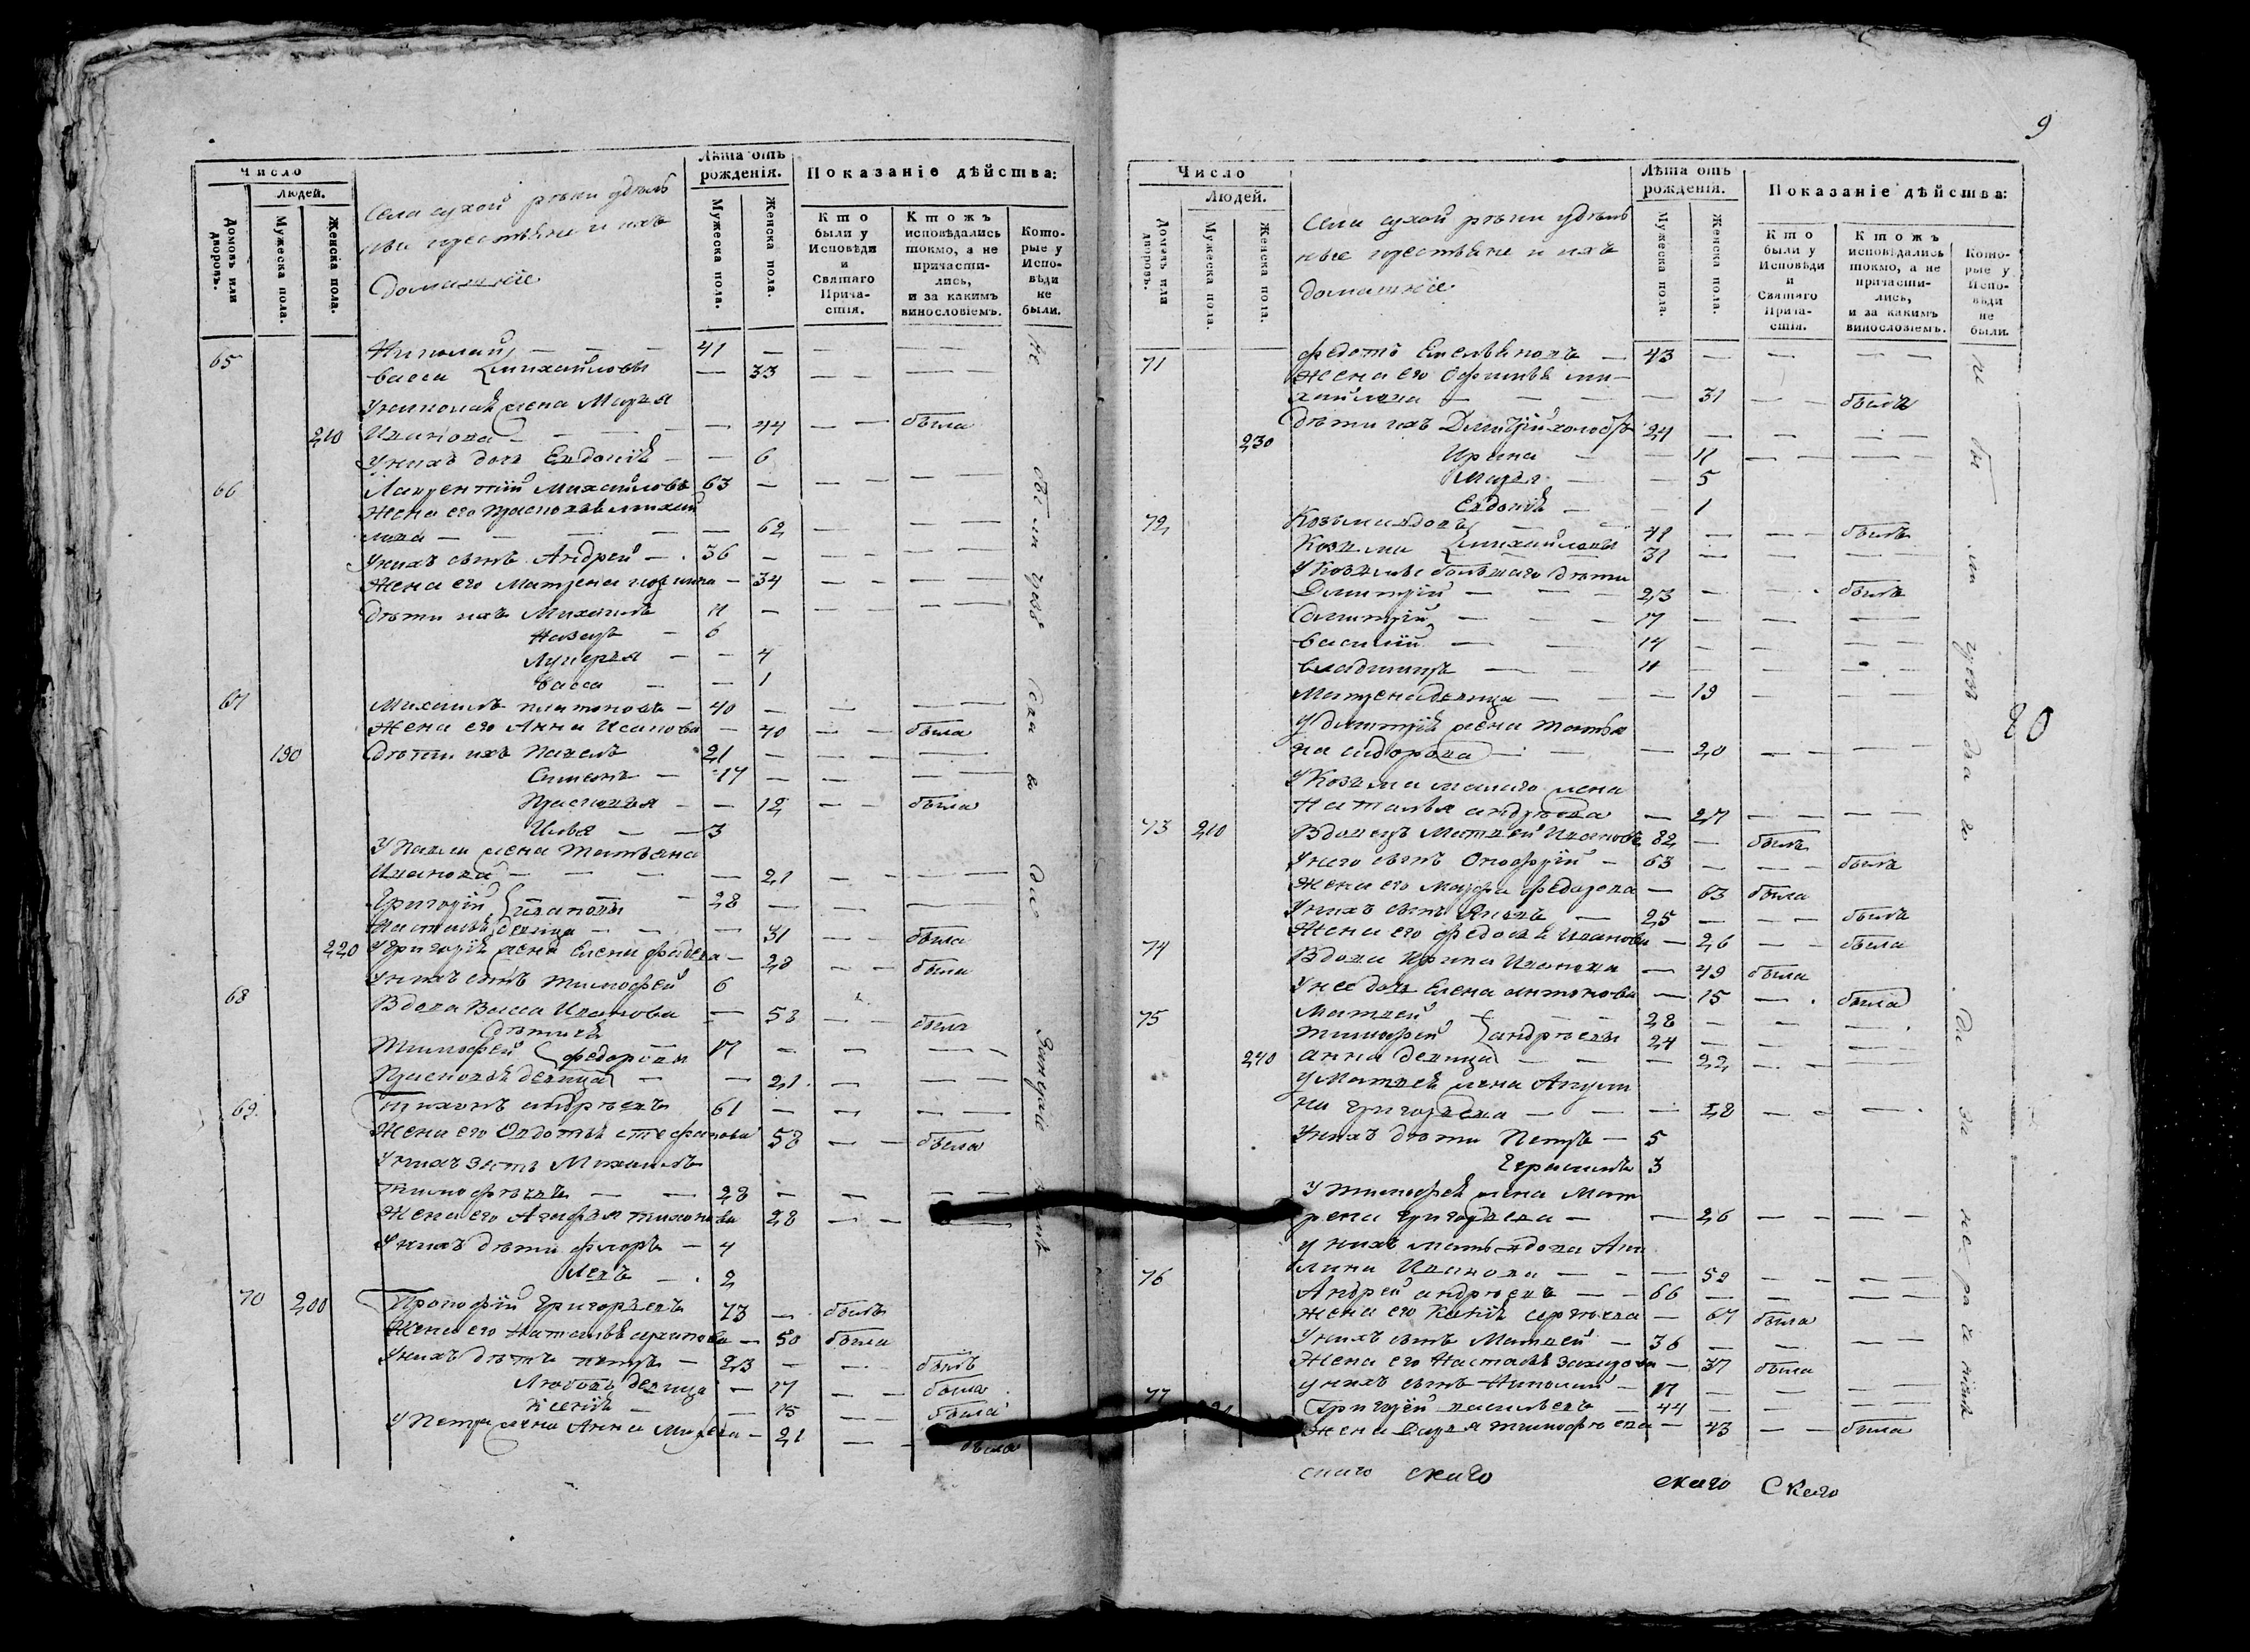 Число
Людей.
Домовъ или дворовъ.
Мужеска пола.
Женска пола.
Села сухой рѣки удѣль
ные крестьяне и ихъ
домашніе
Лѣта отъ рожденія.
Мужеска пола.
Женска пола.
Показаніе дѣйства:
Кто были у Исповѣди и Святаго Причастія.
Ктожъ исповѣдались токмо, а не причастились, и за какимъ винословіемъ.
Которые у Исповѣди не были.
65 Николай — — — 41 — — — —
васса } михайловы — 33 — — — —
У николая жена Марья
210 Иванова — — — 44 — — была
У нихъ дочь Евдокія — — 6
66 Лаврентій Михайловъ 63 — — — — —
Жена его Прасковья михай
лова — — — — 62 — — — —
У нихъ сынъ Андрей — 36 — — — — —
Жена его Матрена — 34 — — — —
дѣти ихъ Михаилъ 11 — — — — —
Назаръ — 6
Лукерья — — 4
Васса — — 1
67 Михаилъ платоновъ — 40 — — — —
Жена его Анна Исакова — 40 — — была
190 дѣти ихъ Павелъ 21 — — — —
Симеонъ — 17 — — — — —
Прасковья — — 12 — — была
Илья — — 3
У Павла жена Татьяна
Иванова — — — — 21 — — — —
Григорій } ивановы — 28 — — —
Наталья девица — — 31 — — была
220 У Григорія жена Елена — 28 — — была
У нихъ сынъ тимофей 6
68 Вдова Васса Иванова — 58 — — была
дѣти ея
Тимофей } федоровы 17 — — — —
Прасковья девица — — 21 — — —
69 Тихонъ андрѣевъ 61 — — — —
Жена его Авдотья стефанова 58 — — была
У нихъ зять Михаилъ
тимофѣевъ — — 28 — — — —
Жена его Агафья тихонова 28 — — — —
У нихъ дѣти флоръ — 4
Левъ — 2
70 200 Прокофій Григорьевъ 73 — былъ
Жена его Наталья — 50 была
У нихъ дѣти петръ — 23 — — — былъ
Любовь девица — 17 — — была
Ксенія — — 15 — — была
У Петра жена Анна — 21 — — была
9
Число
Людей.
Домовъ или дворовъ.
Мужеска пола.
Женска пола.
Села сухой рѣки удѣль
ные крестьяне и ихъ
домашніе
Лѣта отъ рожденія.
Мужеска пола.
Женска пола.
Показаніе дѣйства:
Кто были у Исповѣди и Святаго Причастія.
Ктожъ исповѣдались токмо, а не причастились, и за какимъ винословіемъ.
Которые у Исповѣди не были.
71 федотъ Емельяновъ — 43 — — — —
Жена его Офимья ми—
хайлова — — — — 31 — — была
дѣти ихъ Дмитрій 24 — — — —
230 Ирина — — 11 — — — —
Марья — — 5
Евдокія — — 1
72 Козьма вдовъ — — 41 — — — былъ
Козьма } михайловы 31 — — — —
У Козьмы большаго дѣти
Дмитрій — — — 23 — — былъ
Димитрій — — — 17 — — —
василій — — 14 — — — —
владимиръ — — 11 — —
Матрена девица — — 19 — — —
У дмитрія жена татья
на сидорова — — 20 — — — —
У Козьмы малаго жена
Наталья андрѣева — 27 — — — —
73 210 Вдовецъ Матвей Ивановъ 82 — былъ
У него сынъ Онофрій — 63 — — — былъ
Жена его Марфа федорова — 63 была
У нихъ сынъ Яковъ — 25 — — — былъ
Жена его федосья Иванова — 26 — — была
74 Вдова Ирина Иванова — 49 была
У нее дочь Елена антонова — 15 — была
75 Матвей — — — 28 — — —
тимофей } андрѣевы 24 — — —
240 анна девица — — — 22 — —
У Матвея жена Акули
на Григорьева — — — 28 — — —
У нихъ дѣти Петръ — 5
Герасимъ 3
У тимофея жена Мат
рена Григорьева — — 26 — — — —
у нихъ мать вдова Аку
лина Иванова — — — 59 — — — —
76 Андрей андрѣевъ — — 66 — — — —
Жена его Ксенія сергѣева — 67 была
У нихъ сынъ Матвей — 36 — — — —
Жена его Настасья захарова — 37 была
у нихъ сынъ Николай — 17 — — — —
77 Григорій васильевъ — 44 — — — —
Жена Дарья тимофѣева — 43 — — была
20
скаго скаго скаго Скаго